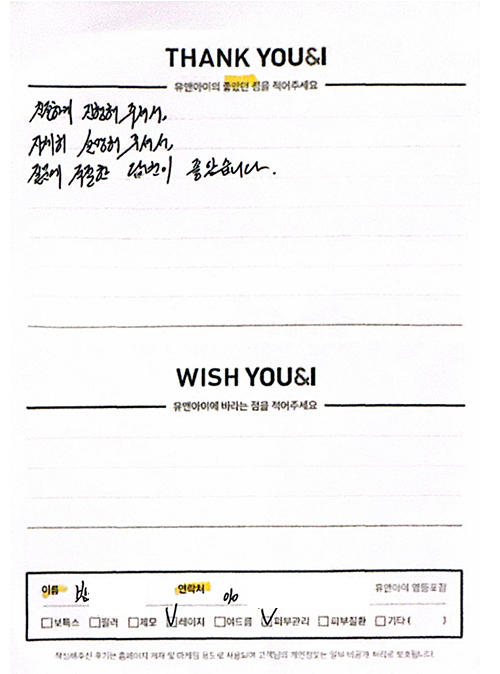 THANK YOU&I
유앤아이의 좋았던 점을 적어주세요
친절하게 진행해 주셔서,
자세히 설명해 주셔서,
질문에 적절한 답변이 좋았습니다.
WISH YOU&I
유앤아이에 바라는 점을 적어주세요
이름 박 연락처 010 유앤아이 영등포점
□보톡스 □필러 □제모 ☑레이저 □여드름 ☑피부관리 □피부질환 □기타 ( )
작성해주신 후기는 홈페이지 게재 및 마케팅 용도로 사용되며 고객님의 개인정보는 일부 비공개 처리로 보호됩니다.